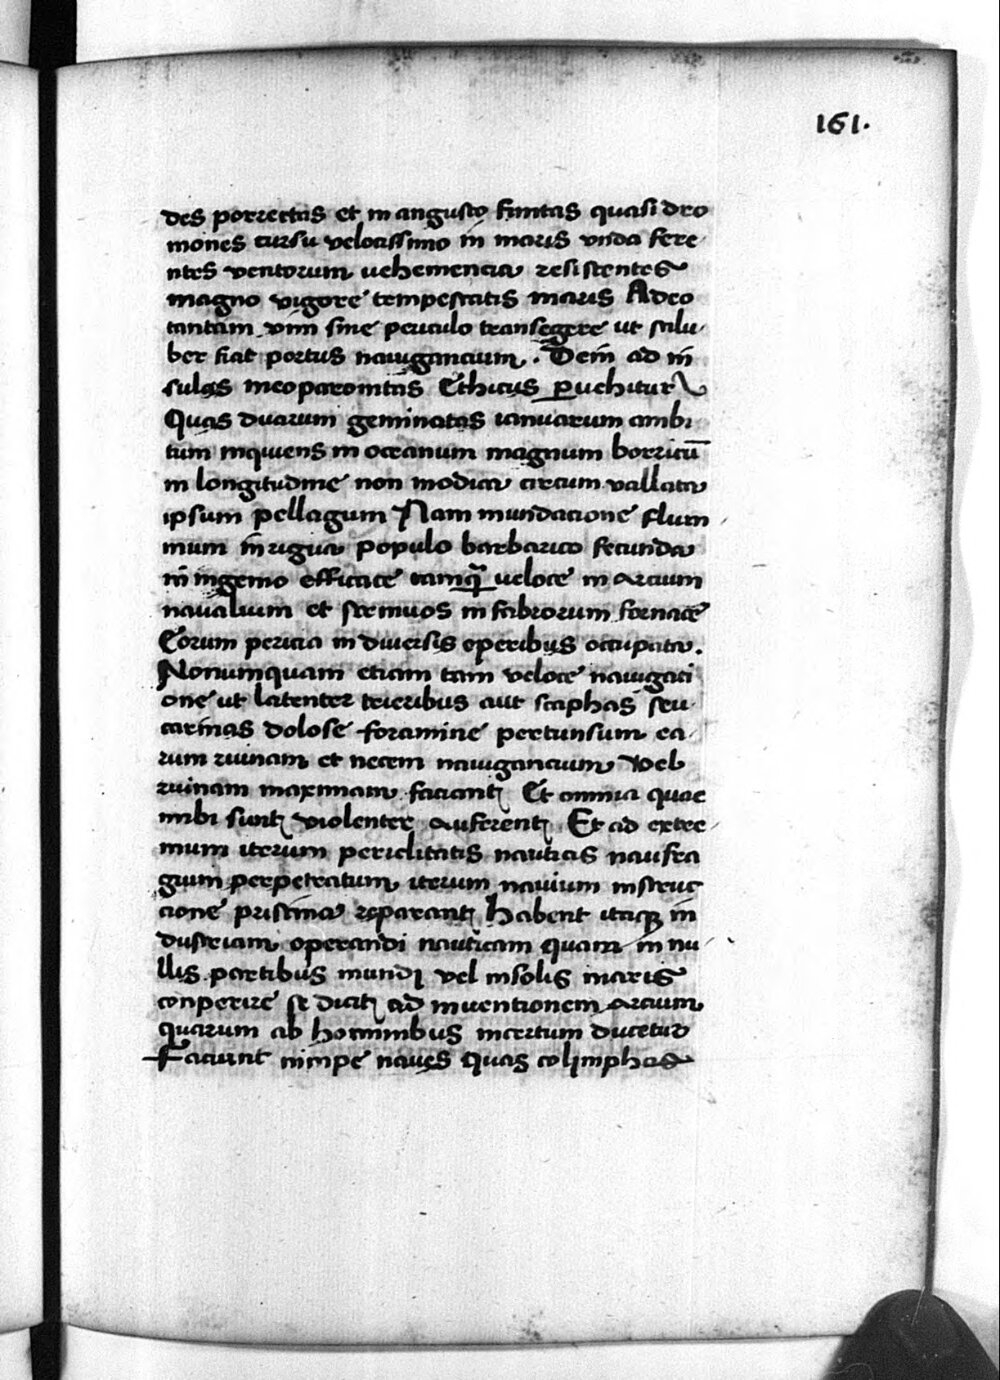 161.
des porrectas et in angusto finitas quasi dro
mones cursu velocissimo in maris vnda fere
ntes ventorum uehemencia resistentes
magno vigore tempestatis maris Adeo
tantam vim sine periculo transegere ut salu
ber fiat portus nauigancium. Dein ad in
sulas meoparonitas Ethicus ꝑuehitur
Quas duarum geminatas ianuarum ambi
tum inquiens in oceanum magnum borricū
in longitudine non modica circum uallata
ipsum pellagum Nam inundacione flum
inum inrigua populo barbarico fecunda
in ingenio efficace tamqꝫ ueloce in arcium
naualium et stemuos in fabrorum fornace
Eorum pericia in diuersis operibus occupata.
Nonumquam etiam tam veloce nauigaci
one ut latenter trieribus aut scaphas seu
carinas dolose foramine pertunsum ea
rum ruinam et necem nauigancium Vel
ruinam maximam faciant Et omnia quae
inibi sunt violenter auferent Et ad extre
mum iterum periclitatis nauticis naufra
gium perpetratum iterum nauium instruc
cione pristina reparant Habent itaqꝫ in
dustriam operandi nauticam quam in nu
llis partibus mundi vel insolis maris
conperire se dicit ad inuentionem arcium
quarum ab hominibus incertum ducetur
Faciunt nimpe naues quas colimphas